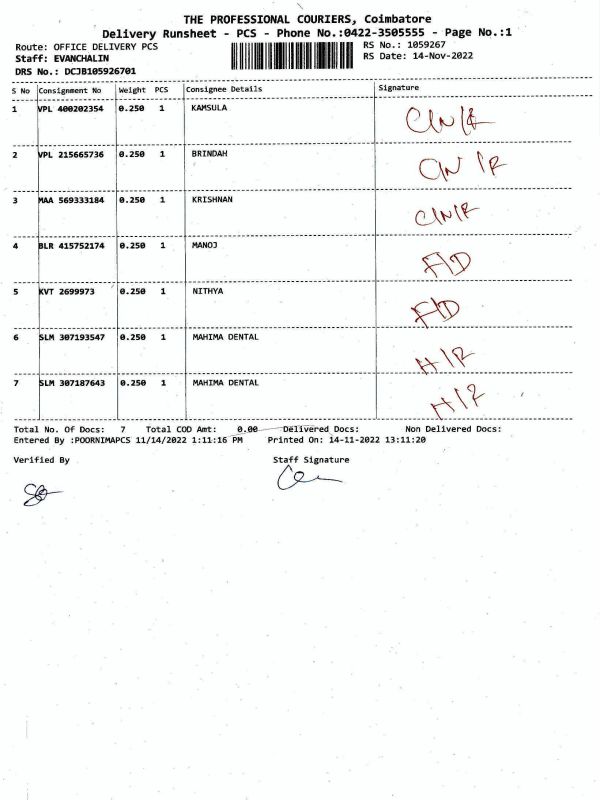 THE PROFESSIONAL COURIERS, Coimbatore
Delivery Runsheet - PCS - Phone No.:0422-3505555 - Page No.:1
Route: OFFICE DELIVERY PCS RS No.: 1059267
Staff: EVANCHALIN RS Date: 14-Nov-2022
DRS No.: DCJB105926701
S No Consignment No Weight PCS Consignee Details Signature
1 VPL 400202354 0.250 1 KAMSULA CIN/R
2 VPL 215665736 0.250 1 BRINDAH CIN/R
3 MAA 569333184 0.250 1 KRISHNAN CIN/R
4 BLR 415752174 0.250 1 MANOJ F/D
5 KVT 2699973 0.250 1 NITHYA F/D
6 SLM 307193547 0.250 1 MAHIMA DENTAL H/R
7 SLM 307187643 0.250 1 MAHIMA DENTAL H/R
Total No. Of Docs: 7 Total COD Amt: 0.00 Delivered Docs: Non Delivered Docs:
Entered By :POORNIMAPCS 11/14/2022 1:11:16 PM Printed On: 14-11-2022 13:11:20
Verified By Staff Signature